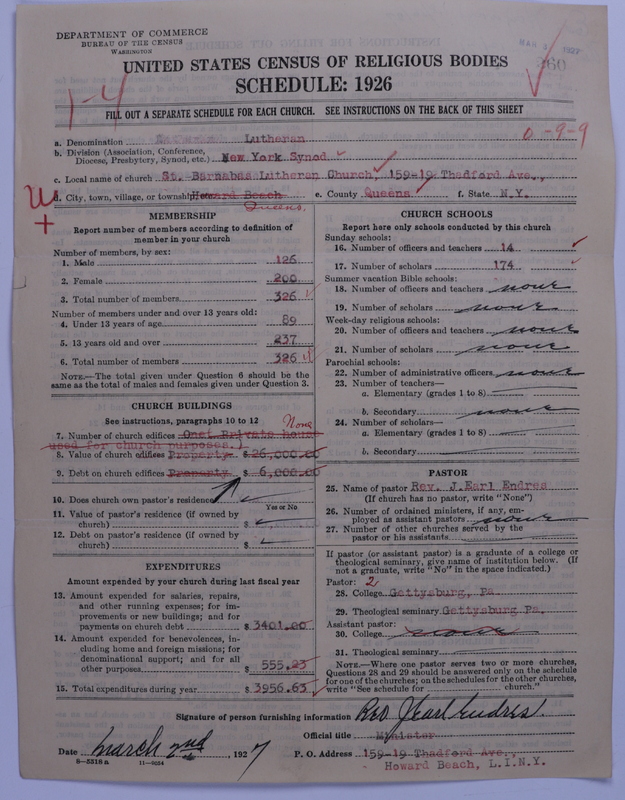 DEPARTMENT OF COMMERCE
BUREAU OF THE CENSUS
WASHINGTON
UNITED STATES CENSUS OF RELIGIOUS BODIES
SCHEDULE: 1926
1-4
FILL OUT A SEPARATE SCHEDULE FOR EACH CHURCH. SEE INSTRUCTIONS ON THE BACK OF THIS SHEET
a. Denomination Lutheran 0-9-9
b. Division (Association, Conference, Diocese, Presbytery, Synod, etc.) New York Synod
c. Local name of church St. Barnabas Lutheran Church, 159-19 Thadford Ave.,
d. City, town, village, or township Howard Beach e. County Queens f. State N.Y.
Queens,
MEMBERSHIP
Report number of members according to definition of
member in your church
Number of members, by sex:
1. Male 126
2. Female 200
3. Total number of members 326
Number of members under and over 13 years old:
4. Under 13 years of age 89
5. 13 years old and over 237
6. Total number of members 326
NOTE.—The total given under Question 6 should be the
same as the total of males and females given under Question 3.
CHURCH BUILDINGS
See instructions, paragraphs 10 to 12
None
7. Number of church edifices One( Private house
used for church purposes.)
8. Value of church edifices Property $ 26,000.00
9. Debt on church edifices Property $ 6,000.00
10. Does church own pastor's residence
Yes or No
11. Value of pastor's residence (if owned by
church) $
12. Debt on pastor's residence (if owned by
church) $
EXPENDITURES
Amount expended by your church during last fiscal year
13. Amount expended for salaries, repairs,
and other running expenses; for im-
provements or new buildings; and for
payments on church debt $ 3401.00
14. Amount expended for benevolences, in-
cluding home and foreign missions; for
denominational support; and for all
other purposes $ 555.
15. Total expenditures during year $ 3956.63
CHURCH SCHOOLS
Report here only schools conducted by this church
Sunday schools:
16. Number of officers and teachers 14
17. Number of scholars 174
Summer vacation Bible schools:
18. Number of officers and teachers none
19. Number of scholars none
Week-day religious schools:
20. Number of officers and teachers none
21. Number of scholars none
Parochial schools:
22. Number of administrative officers none
23. Number of teachers—
a. Elementary (grades 1 to 8)
b. Secondary none
24. Number of scholars—
a. Elementary (grades 1 to 8)
b. Secondary
PASTOR
25. Name of pastor Rev. J.Earl Endres
(If church has no pastor, write "None")
26. Number of ordained ministers, if any, em-
ployed as assistant pastors none
27. Number of other churches served by the
pastor or his assistants
If pastor (or assistant pastor) is a graduate of a college or
theological seminary, give name of institution below. (If
not a graduate, write "No" in the space indicated.)
Pastor: 2
28. College Gettysburg, Pa.
29. Theological seminary Gettysburg Pa.
Assistant pastor:
30. College none
31. Theological seminary
NOTE.—Where one pastor serves two or more churches,
Questions 28 and 29 should be answered only on the schedule
for one of the churches; on the schedules for the other churches,
write "See schedule for church."
Signature of person furnishing information Rev J Earl Endres.
Official title Minister
Date March 2nd, 1927 P. O. Address 159-19 Thadford Ave.,
8-5518 a 11-9034 Howard Beach, L.I.N.Y.